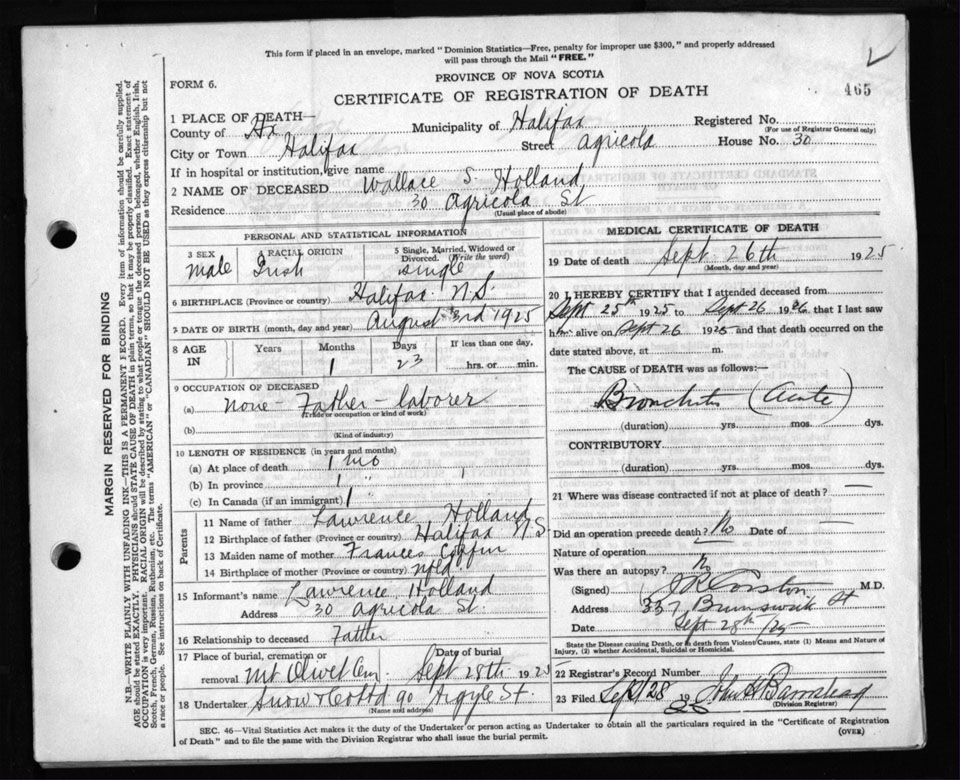 This form if placed in an envelope, marked "Dominion Statistics—Free, penalty for improper use $300," and properly addressed
will pass through the Mail "FREE."
PROVINCE OF NOVA SCOTIA
FORM 6.
CERTIFICATE OF REGISTRATION OF DEATH
465
1 PLACE OF DEATH—
County of Hx Municipality of Halifax Registered No.
(For use of Registrar General only)
City or Town Halifax Street Agricola House No. 30
If in hospital or institution, give name
2 NAME OF DECEASED Wallace S. Holland
Residence 30 Agricola St
(Usual place of abode)
PERSONAL AND STATISTICAL INFORMATION
3 SEX Male
RACIAL ORIGIN Irish
5 Single, Married, Widowed or Divorced. (Write the word) single
6 BIRTHPLACE (Province or country) Halifax N.S.
7 DATE OF BIRTH (month, day and year) August 3rd 1925
8 AGE IN Years Months 1 Days 23 If less than one day, hrs. or min.
9 OCCUPATION OF DECEASED
(a) None - Father - laborer
(Trade or occupation or kind of work)
(b)
(Kind of industry)
10 LENGTH OF RESIDENCE (in years and months)
(a) At place of death 1 mo
(b) In province 1 "
(c) In Canada (if an immigrant) 1
Parents
11 Name of father Lawrence Holland
12 Birthplace of father (Province or country) Halifax N.S.
13 Maiden name of mother Frances Coffin
14 Birthplace of mother (Province or country) Nfld
15 Informant's name Lawrence Holland
Address 30 Agricola St.
16 Relationship to deceased Father
17 Place of burial, cremation or removal Mt Olivet Cem. Date of burial Sept 28th 1925
18 Undertaker Snow & Co Ltd 90 Argyle St.
(Name and address)
MEDICAL CERTIFICATE OF DEATH
19 Date of death Sept 26th 1925
(Month, day and year)
20 I HEREBY CERTIFY that I attended deceased from
Sept 25th 1925 to Sept 26 1926 that I last saw
h alive on Sept 26 1925 and that death occurred on the
date stated above, at m.
The CAUSE of DEATH was as follows:—
Bronchitis (Acute)
(duration) yrs. mos. dys.
CONTRIBUTORY
(duration) yrs. mos. dys.
21 Where was disease contracted if not at place of death? —
Did an operation precede death? No Date of —
Nature of operation
Was there an autopsy? No
(Signed) M.D.
Address 337 Brunswick St
Date Sept 28th/25
State the Disease causing Death, or is death from Violent Causes, state (1) Means and Nature of
Injury, (2) whether Accidental, Suicidal or Homicidal.
22 Registrar's Record Number
23 Filed Sept 28 19 25 John H Barnstead
(Division Registrar)
SEC. 46—Vital Statistics Act makes it the duty of the Undertaker or person acting as Undertaker to obtain all the particulars required in the "Certificate of Registration
of Death" and to file the same with the Division Registrar who shall issue the burial permit.
(OVER)
MARGIN RESERVED FOR BINDING
N.B.—WRITE PLAINLY WITH UNFADING INK—THIS IS A PERMANENT RECORD. Every item of information should be carefully supplied.
AGE should be stated EXACTLY. PHYSICIANS should STATE CAUSE OF DEATH in plain terms, so that it may be properly classified. Exact statement of
OCCUPATION is very important. RACIAL ORIGIN will be described by stating to what people or tongue the deceased person belonged, whether English, Irish,
Scotch, French, German, Russian, Ruthenian, etc. The terms "AMERICAN" or "CANADIAN" SHOULD NOT BE USED as they express citizenship but not
a race or people. See instructions on back of Certificate.